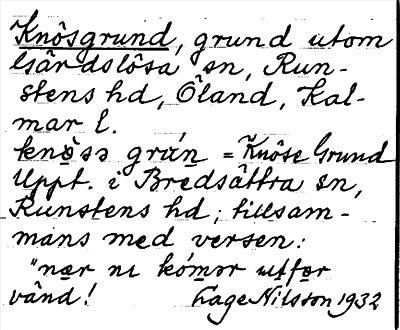 Knösgrund, grund utom
Gärdslösa sn, Run-
stens hd, Öland, Kal-
mar l.
knö̀sə grún = Knöse Grund
Uppt. i Bredsättra sn,
Runstens hd; tillsam-
mans med versen:
"nær nı kómər utfər
vänd! Åage Nilsson 1932